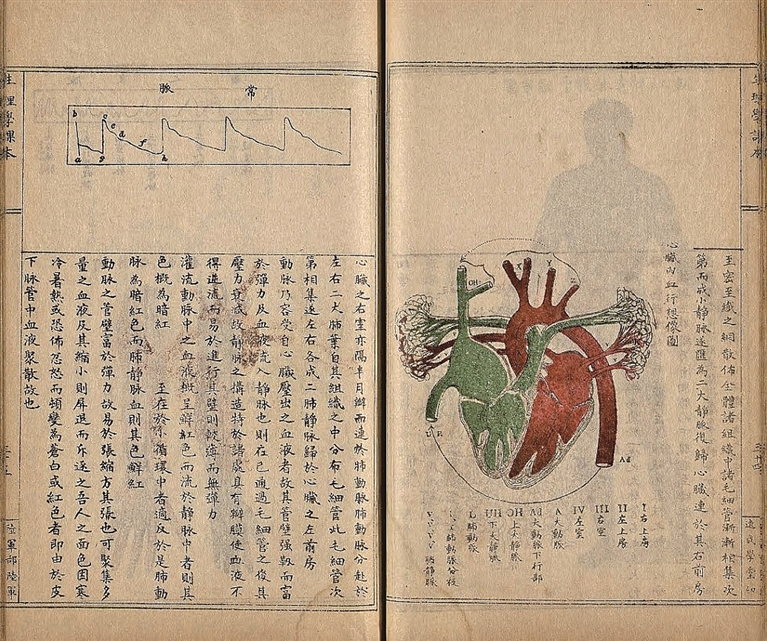 生理學課本
速成學堂印
至密至纖之網散佈全體諸組織中諸毛細管漸漸相集次
第而成小靜脈遂匯為二大靜脈復歸心臟連於其右前房
心臟內血行想像圖
OH
R
Ad
I 右上房
II 左上房
III 右室
IV 左室
A 大動脈
Ad 大動脈下行部
OH 上大靜脈
UH 下大靜脈
L 肺動脈
肺動脈分枝
V.V.V.V. 肺靜脈
常脈
b c e d f
a g h
心臟之右室亦隔半月瓣而連於肺動脈肺動脈分赴於
左右二大肺葉自其組織之中分布毛細管此毛細管次
第相集遂左右各成二肺靜脈歸於心臟之左前房
動脈乃容受自心臟壓出之血液者故其管壁強靱而富
於彈力反血液流入靜脈也則在已通過毛細管之後其
壓力已成故靜脈之構造特於諸處具有瓣膜使血液不
得逆流而易於進行其壁則軟薄而無彈力
灌流動脈中之血液概呈鮮紅色而流於靜脈中者則其
色概為暗紅 至在於小循環中者適反於是肺動
脈為暗紅色而肺靜脈血則其色鮮紅
動脈之管壁富於彈力故易於張縮方其張也可聚集多
量之血液及其縮小則屏退而斥逐之吾人之面色因寒
冷暑熱或恐佈忿怒而頓變為蒼白或紅色者即由於皮
下脈管中血液聚散故也
生理學課本
陸軍部陸軍